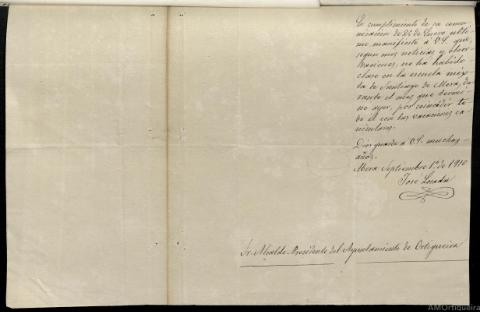 En cumplimiento de su comu-
nicación de 26 de Enero últi-
mo manifiesto á V.S. que,
segun mis noticias y obser-
vaciones, no ha habido
clase en la escuela mix-
ta de Santiago de Mera, du-
rante el mes que termi-
nó ayer, por coincidir to-
do él con las vacaciones ca-
niculares.
Dios guarde á V.S. muchos
años.
Mera Septiembre 1º de 1910
José
Sr. Alcalde-Presidente del Ayuntamiento de Ortigueira
AMOrtigueira